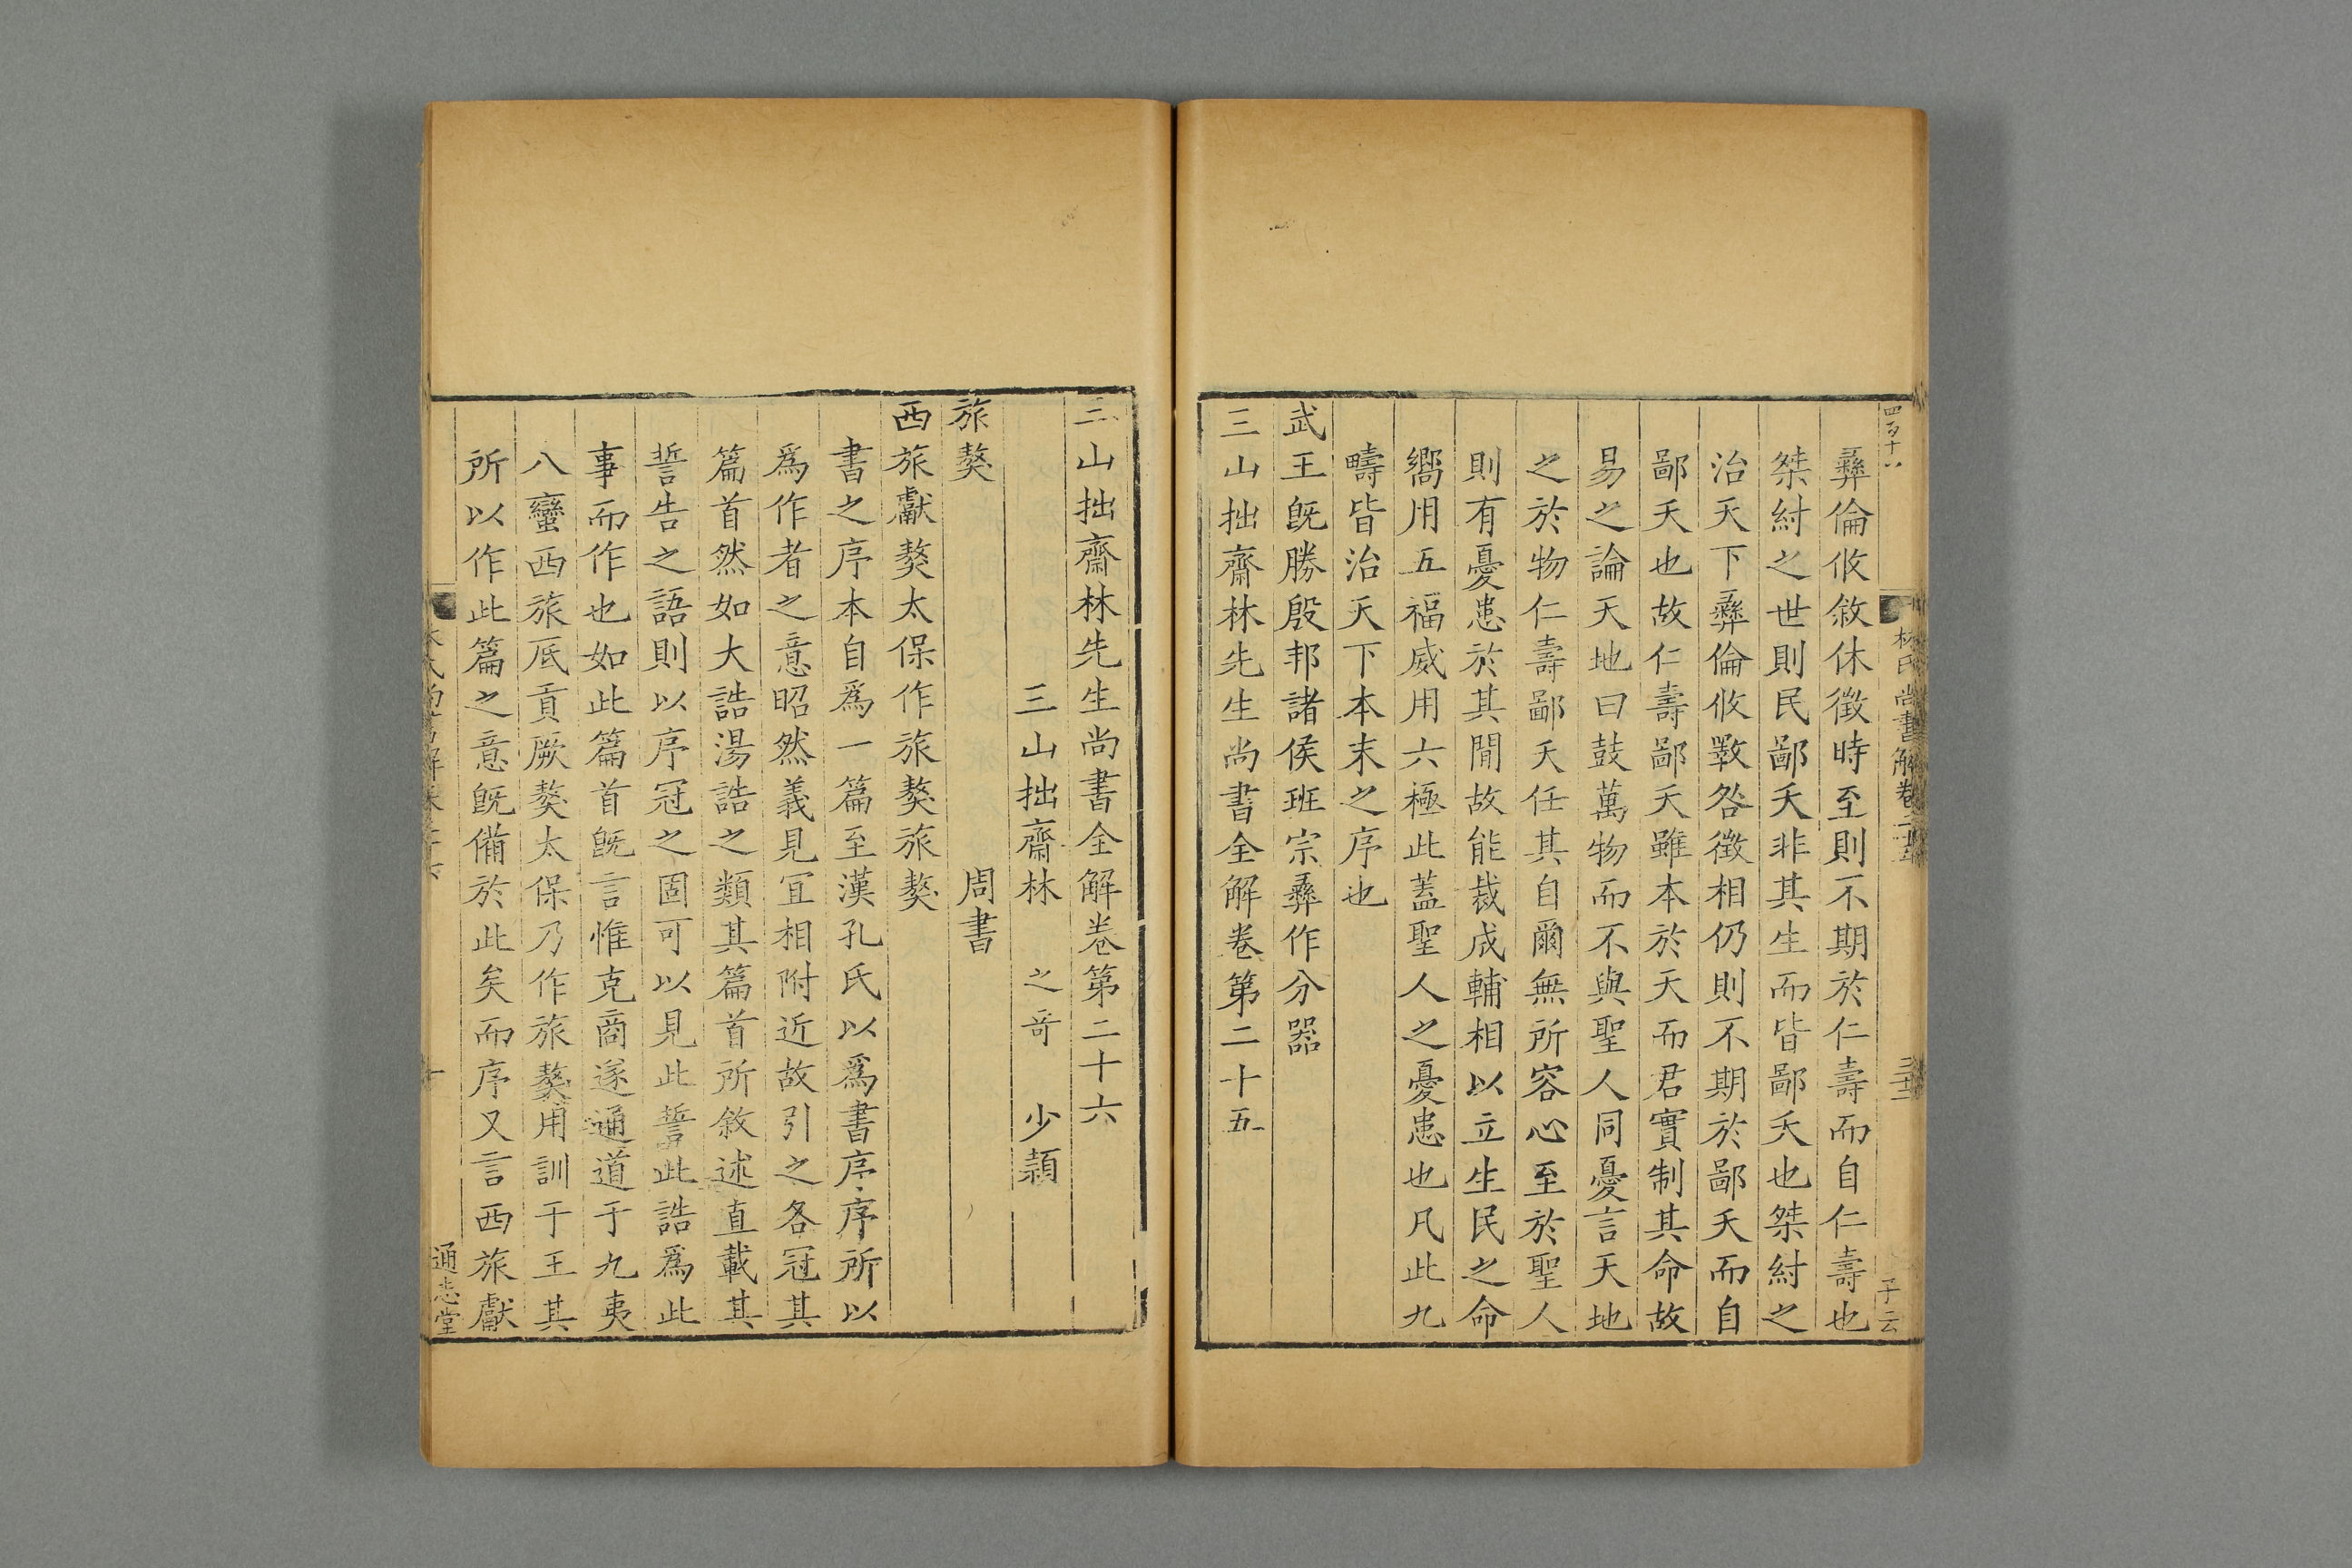 四百十八
林氏尚書解卷二十五
三十二
子云
彝倫攸敘休徵時至則不期於仁壽而自仁壽也
桀紂之世則民鄙夭非其生而皆鄙夭也桀紂之
治天下彝倫攸斁咎徵相仍則不期於鄙夭而自
鄙夭也故仁壽鄙夭雖本於天而君實制其命故
易之論天地曰鼓萬物而不與聖人同憂言天地
之於物仁壽鄙夭任其自爾無所容心至於聖人
則有憂患於其閒故能裁成輔相以立生民之命
嚮用五福威用六極此蓋聖人之憂患也凡此九
疇皆治天下本末之序也
武王旣勝殷邦諸侯班宗彝作分器
三山拙齋林先生尚書全解卷第二十五
三山拙齋林先生尚書全解卷第二十六
三山拙齋林 之奇 少穎
旅獒 周書
西旅獻獒太保作旅獒旅獒
書之序本自爲一篇至漢孔氏以爲書序序所以
爲作者之意昭然義見宜相附近故引之各冠其
篇首然如大誥湯誥之類其篇首所敘述直載其
誓告之語則以序冠之固可以見此誓此誥爲此
事而作也如此篇首旣言惟克商遂通道于九夷
八蠻西旅厎貢厥獒太保乃作旅獒用訓于王其
所以作此篇之意旣備於此矣而序又言西旅獻
通志堂